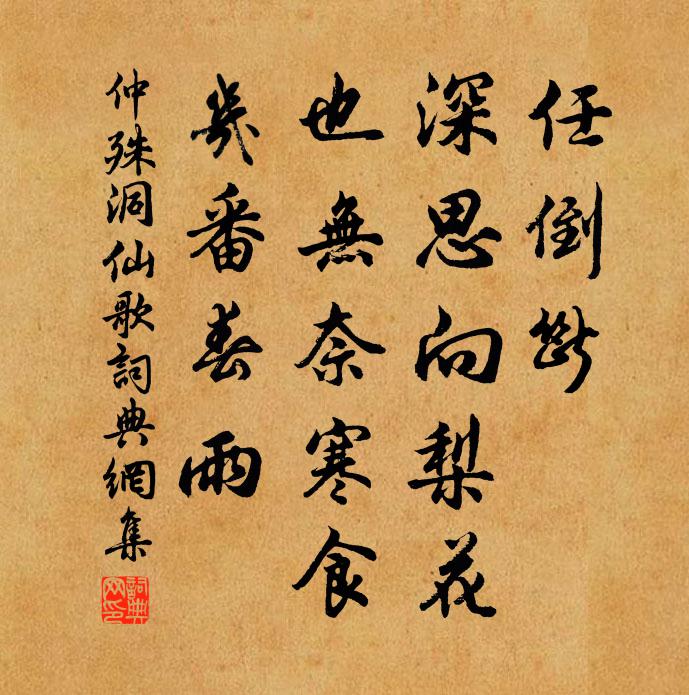 任倒斷
深思向梨花
也無奈寒食
幾番春雨
仲殊洞仙歌詞典網集
詞典网印